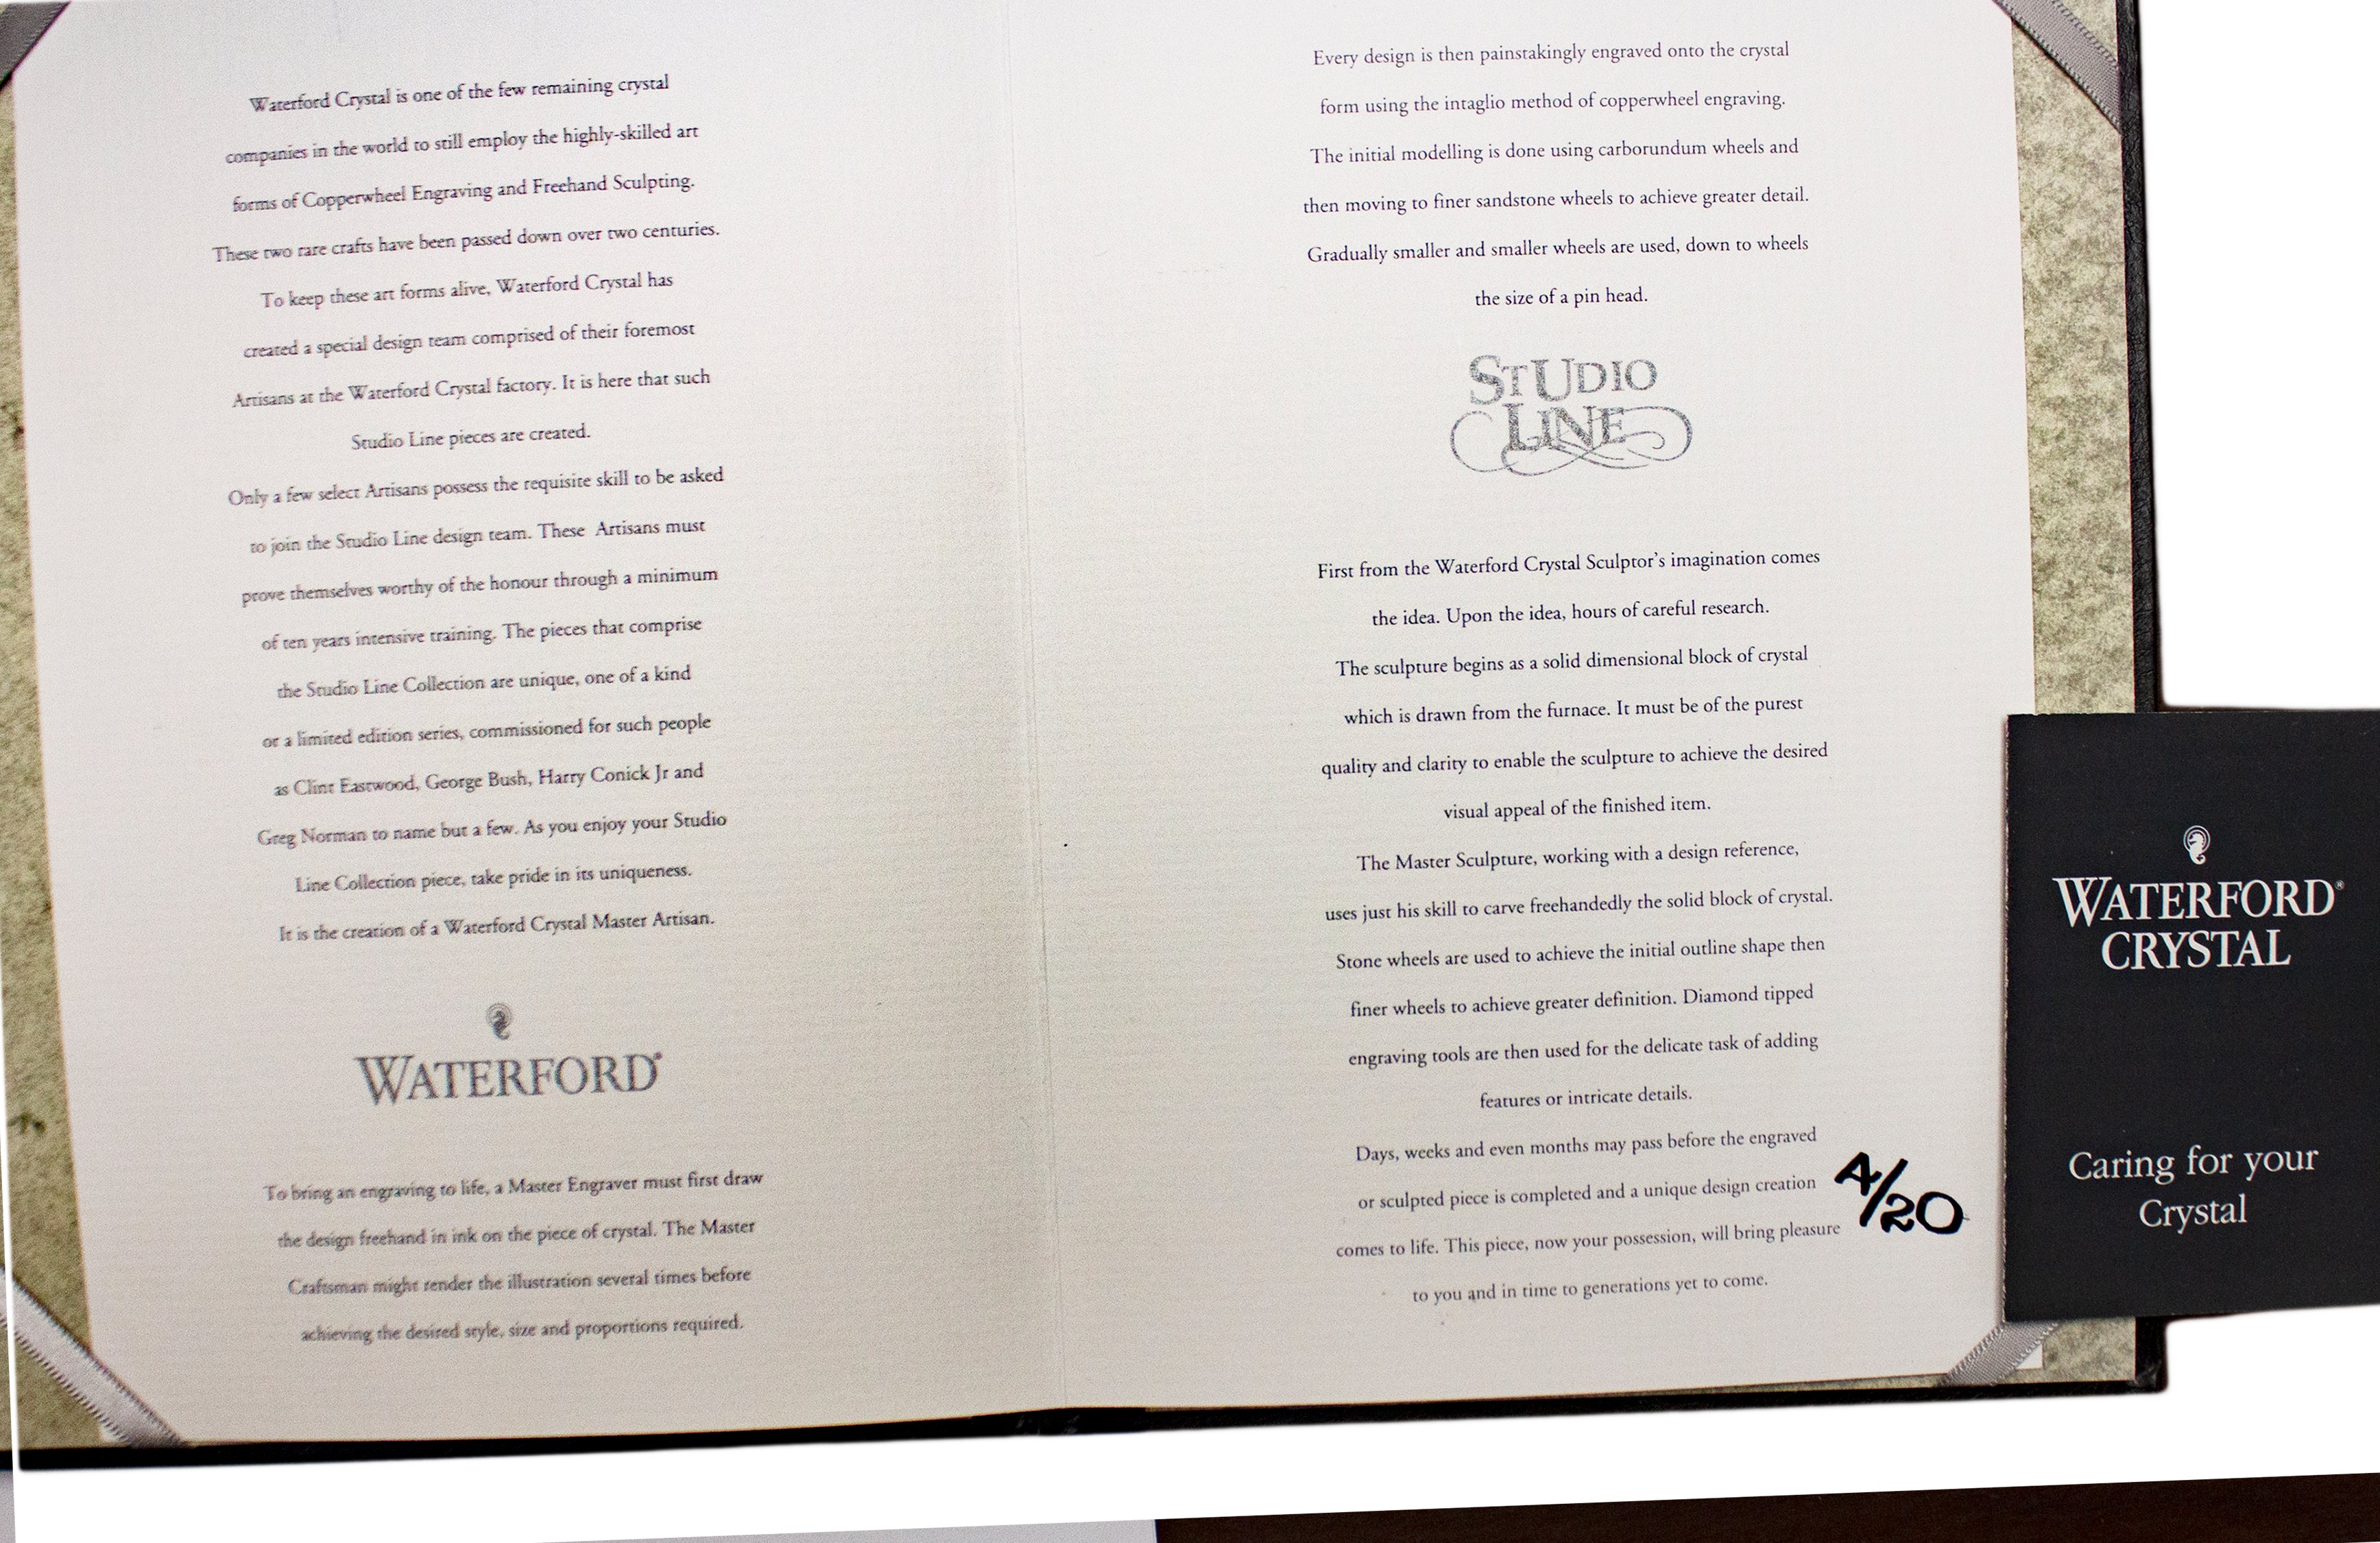 Waterford Crystal is one of the few remaining crystal
companies in the world to still employ the highly-skilled art
forms of Copperwheel Engraving and Freehand Sculpting.
These two rare crafts have been passed down over two centuries.
To keep these art forms alive, Waterford Crystal has
created a special design team comprised of their foremost
Artisans at the Waterford Crystal factory. It is here that such
Studio Line pieces are created.
Only a few select Artisans possess the requisite skill to be asked
to join the Studio Line design team. These Artisans must
prove themselves worthy of the honour through a minimum
of ten years intensive training. The pieces that comprise
the Studio Line Collection are unique, one of a kind
or a limited edition series, commissioned for such people
as Clint Eastwood, George Bush, Harry Conick Jr and
Greg Norman to name but a few. As you enjoy your Studio
Line Collection piece, take pride in its uniqueness.
It is the creation of a Waterford Crystal Master Artisan.
WATERFORD®
To bring an engraving to life, a Master Engraver must first draw
the design freehand in ink on the piece of crystal. The Master
Craftsman might render the illustration several times before
achieving the desired style, size and proportions required.
Every design is then painstakingly engraved onto the crystal
form using the intaglio method of copperwheel engraving.
The initial modelling is done using carborundum wheels and
then moving to finer sandstone wheels to achieve greater detail.
Gradually smaller and smaller wheels are used, down to wheels
the size of a pin head.
STUDIO
LINE
First from the Waterford Crystal Sculptor's imagination comes
the idea. Upon the idea, hours of careful research.
The sculpture begins as a solid dimensional block of crystal
which is drawn from the furnace. It must be of the purest
quality and clarity to enable the sculpture to achieve the desired
visual appeal of the finished item.
The Master Sculpture, working with a design reference,
uses just his skill to carve freehandedly the solid block of crystal.
Stone wheels are used to achieve the initial outline shape then
finer wheels to achieve greater definition. Diamond tipped
engraving tools are then used for the delicate task of adding
features or intricate details.
Days, weeks and even months may pass before the engraved
or sculpted piece is completed and a unique design creation
comes to life. This piece, now your possession, will bring pleasure
to you and in time to generations yet to come.
4/20
WATERFORD®
CRYSTAL
Caring for your
Crystal